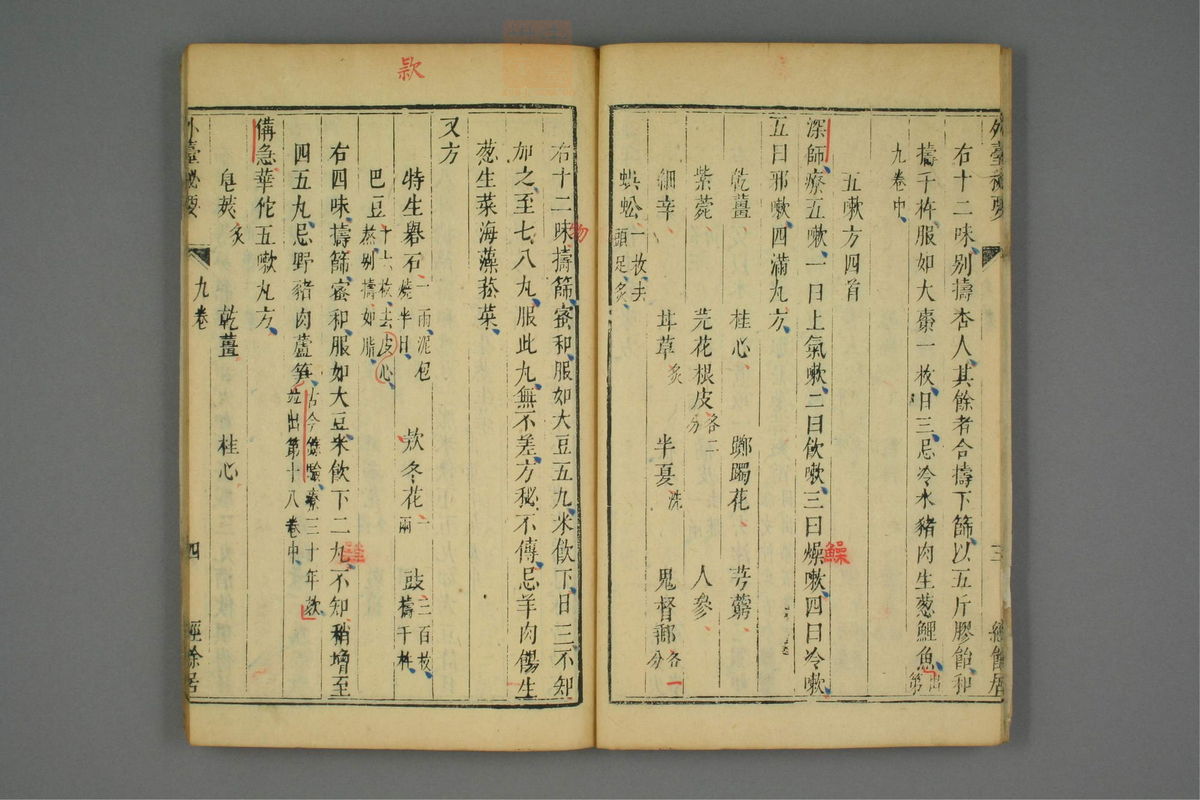 右十二味別擣杏人其餘者合擣下篩以五斤膠飴和
擣千杵服如大棗一枚日三忌冷水豬肉生葱鯉魚出第
九卷中
五嗽方四首
深師療五嗽一曰上氣嗽二曰飲嗽三曰燥嗽四曰冷嗽
五曰邪嗽四滿丸方
乾薑 桂心 躑躅花 芎藭
紫菀 芫花根皮各二分 人參
細辛 甘草炙 半夏洗 鬼督郵各一分
蜈蚣一枚去頭足炙
右十二味擣篩蜜和服如大豆五丸米飲下日三不知
加之至七八丸服此丸無不差方秘不傳忌羊肉餳生
葱生菜海藻菘菜
又方
特生礜石一兩泥包燒半日 款冬花一兩 豉三百枚擣千杵
巴豆十六枚去皮心熬別擣如脂
右四味擣篩蜜和服如大豆米飲下二丸不知稍增至
四五丸忌野豬肉蘆笋古今錄驗療三十年欬並出第十八卷中
備急華佗五嗽丸方
皂莢炙 乾薑 桂心
外臺祕要 九卷 四 經餘居
款
鱢